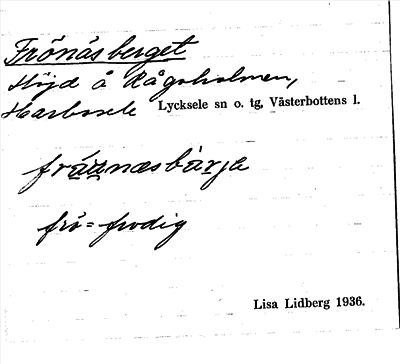 Frönäsberget
Höjd å Rågoholmen,
Harbosele Lycksele sn o. tg, Västerbottens l.
frö= frodig
Lisa Lidberg 1936.